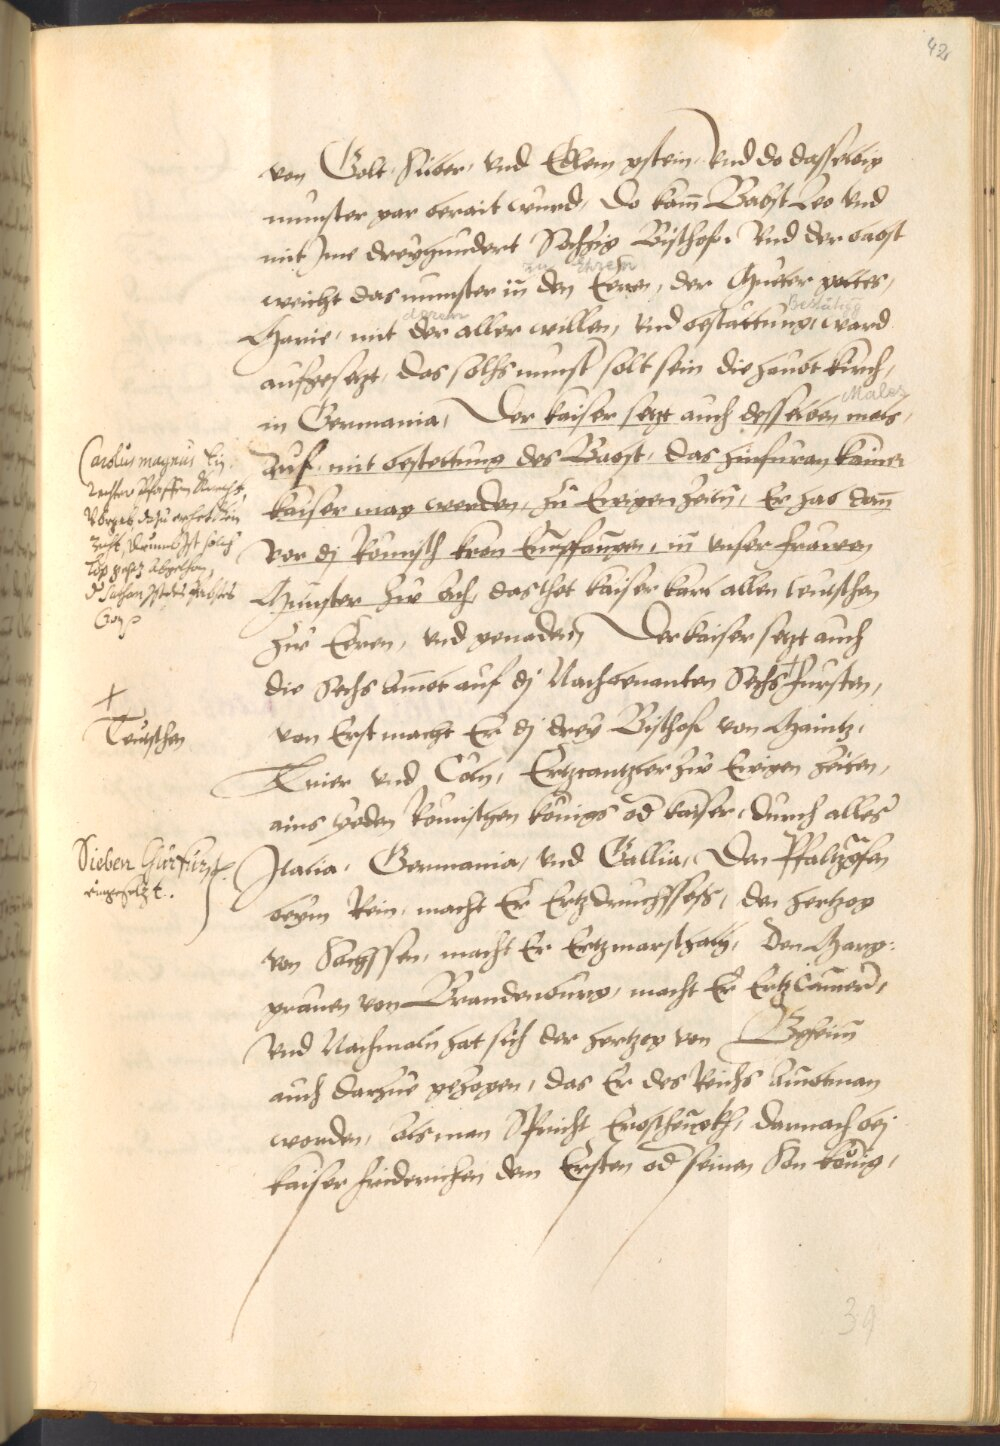 42
von Golt, Silber, vnd Edlem gstein, Vnd do dasselbig
munster gar berait wurd, Do kam̄ Babst Leo vnd
mit Ime dreyhundert Sechzig Bischof. Vnd der babst
zu Ehren
weicht das munster in̄ den Eeren, der Mueter gottes,
deren Bestätigg
Marie, mit der aller willen, vnd bestattung, ward
aufgesetzt, das solhs munst solt sein die haubt kirch,
Males
in Germania, Der kaiser setzt auch desselben mals,
Auf mit bestettung des Babst, das hinfuran kainer
kaiser mag werden, zu Ewigen zeitn̄, Er hab dan̄
vor dj Romisch kron Empfangen, in̄ vnser frawen
Munster zw Ach, das thet kaiser karl allen teutschen
zw Eeren, vnd genaden Der kaiser setzt auch
die Sechs ambt auf dj Nachbenanten Sechs + fursten,
von Erst macht Er dj drey Bischof von Maintz,
Trier vnd Cöln, Ertzcantzler zw Ewigen zeiten,
ains yeden Romischen königs od kaiser, durch alles
Italia, Germania, vnd Gallia, Den Pfaltzgrafen
beym Rein, macht Er Ertzdruchssess, den hertzog
von Sachssen, macht Er Ertzmarschalh, Den Marg:
grauen von Brandenburg, macht Er Ertz Camerer,
Vnd Nachmaln hat sich der hertzog von Behaim
auch darzue gezogen, das Er des Reichs Ambtman
worden, als man Spricht Erbschenckh, darnach bej
kaiser Friderichen dem Ersten od seinen Son könig,
Carolus magnus Ein
rechter Pfaffen Knecht,
+
Teutschen
Sieben Churfurst.
eingesetzt.
39